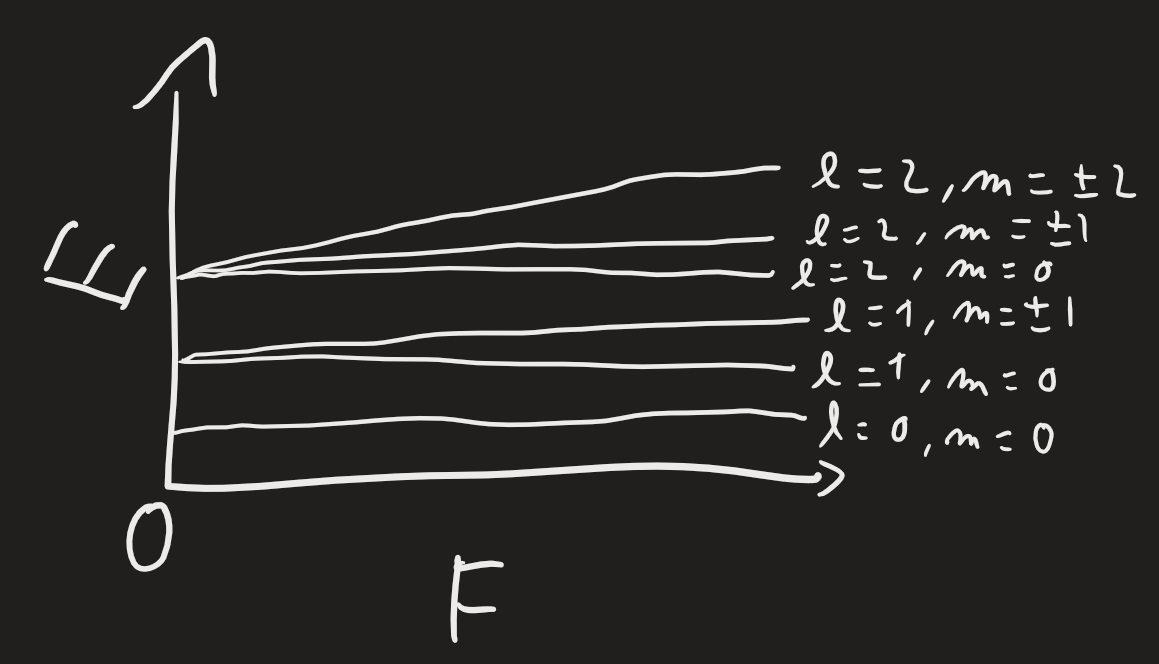 E
l = 2, m = ± 2
l = 2, m = ±1
l = 2, m = 0
l = 1, m = ± 1
l = 1, m = 0
l = 0, m = 0
0
F